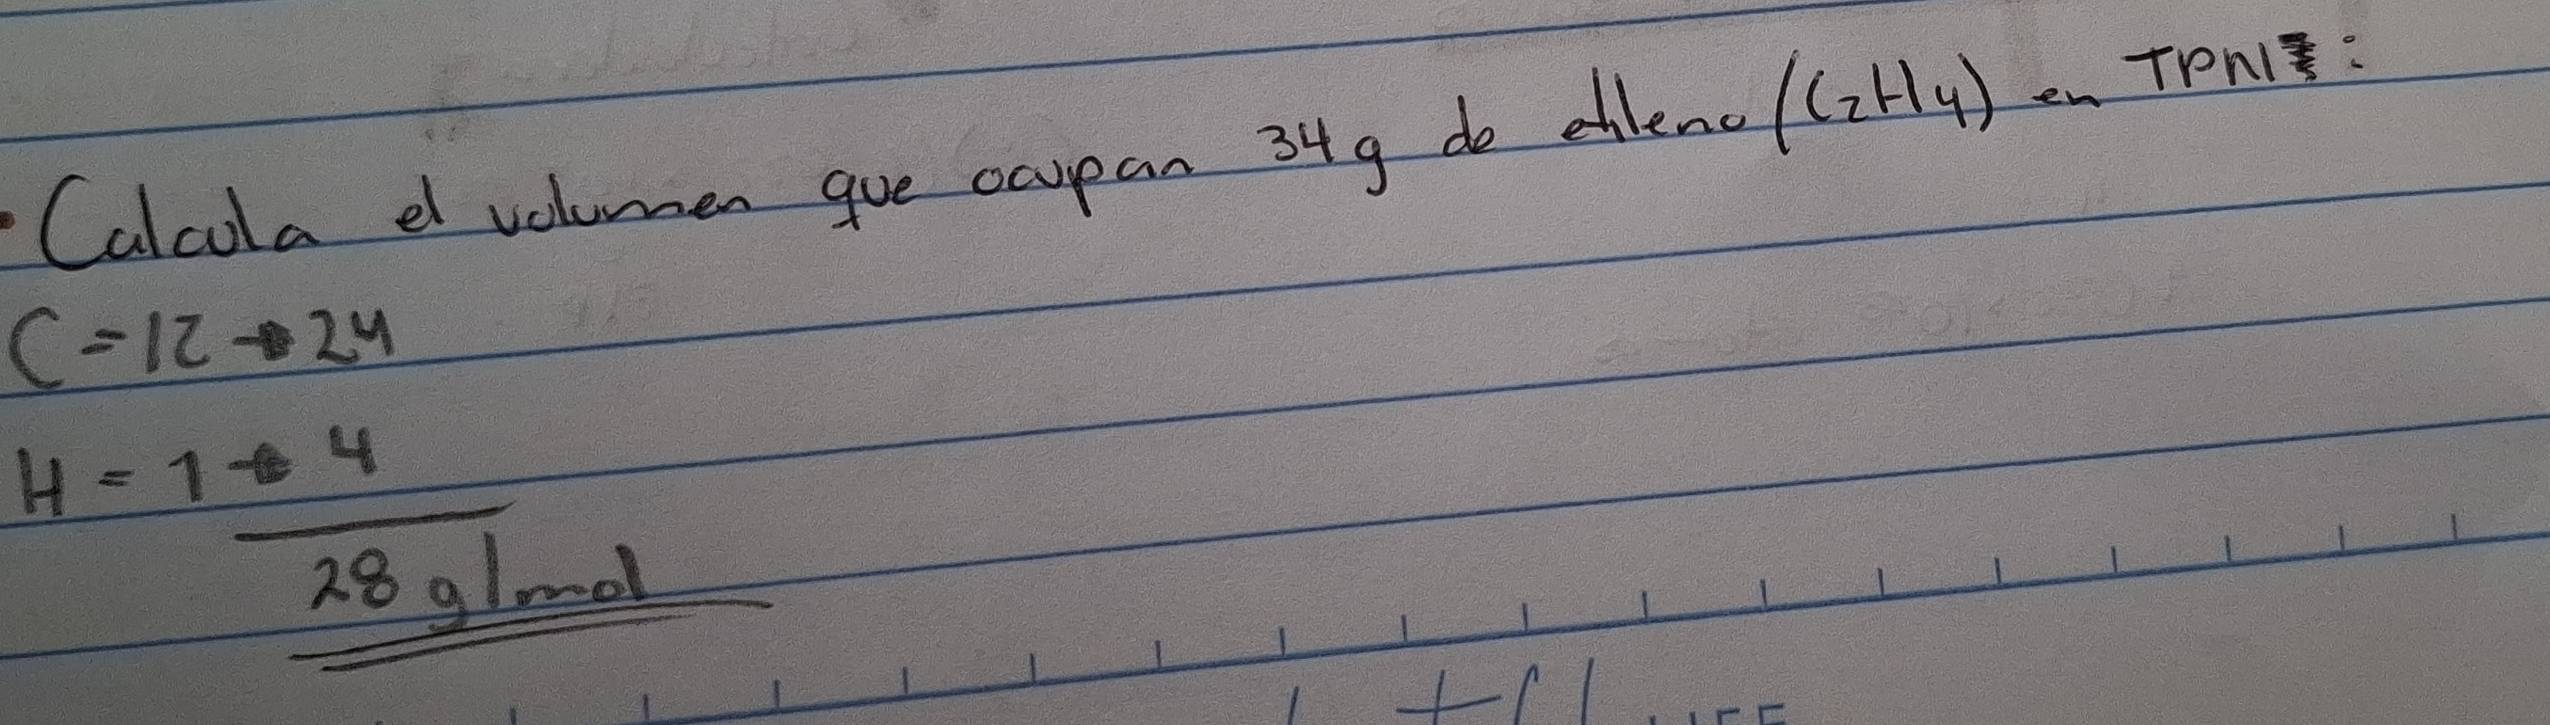 Calcula el volumen que ocupan 34g de etileno (C2H4) en TPN:
C = 12 → 24
H = 1 → 4
28 g/mol